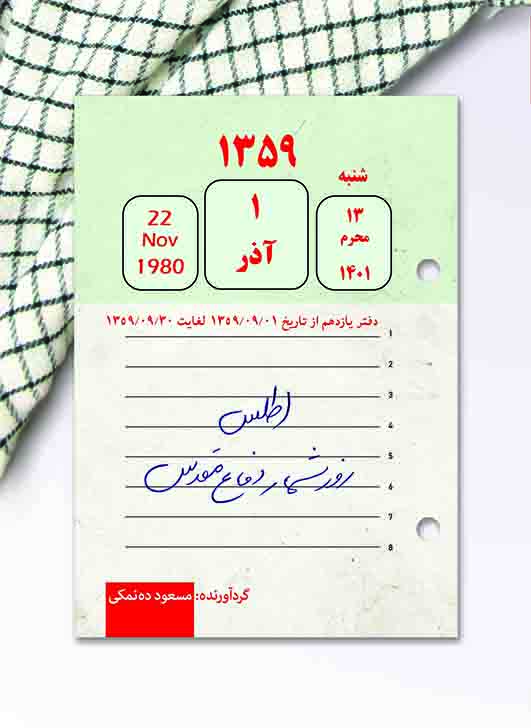 ۱۳۵۹
شنبه
۱۳
محرم
۱۴۰۱
۱
آذر
22
Nov
1980
دفتر یازدهم از تاریخ ۱۳۵۹/۰۹/۰۱ لغایت ۱۳۵۹/۰۹/۳۰
1
2
3
اطلس
4
5
روزشمار دفاع مقدس
6
7
8
گردآورنده: مسعود ده‌نمکی